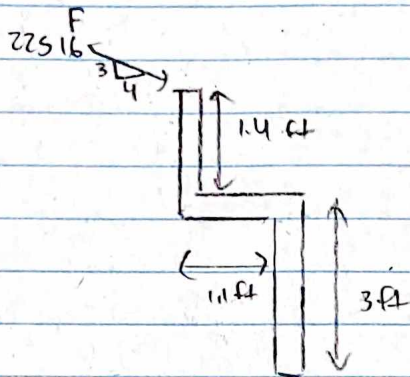 F
225 lb
3
4
1.4 ft
1.1 ft
3 ft